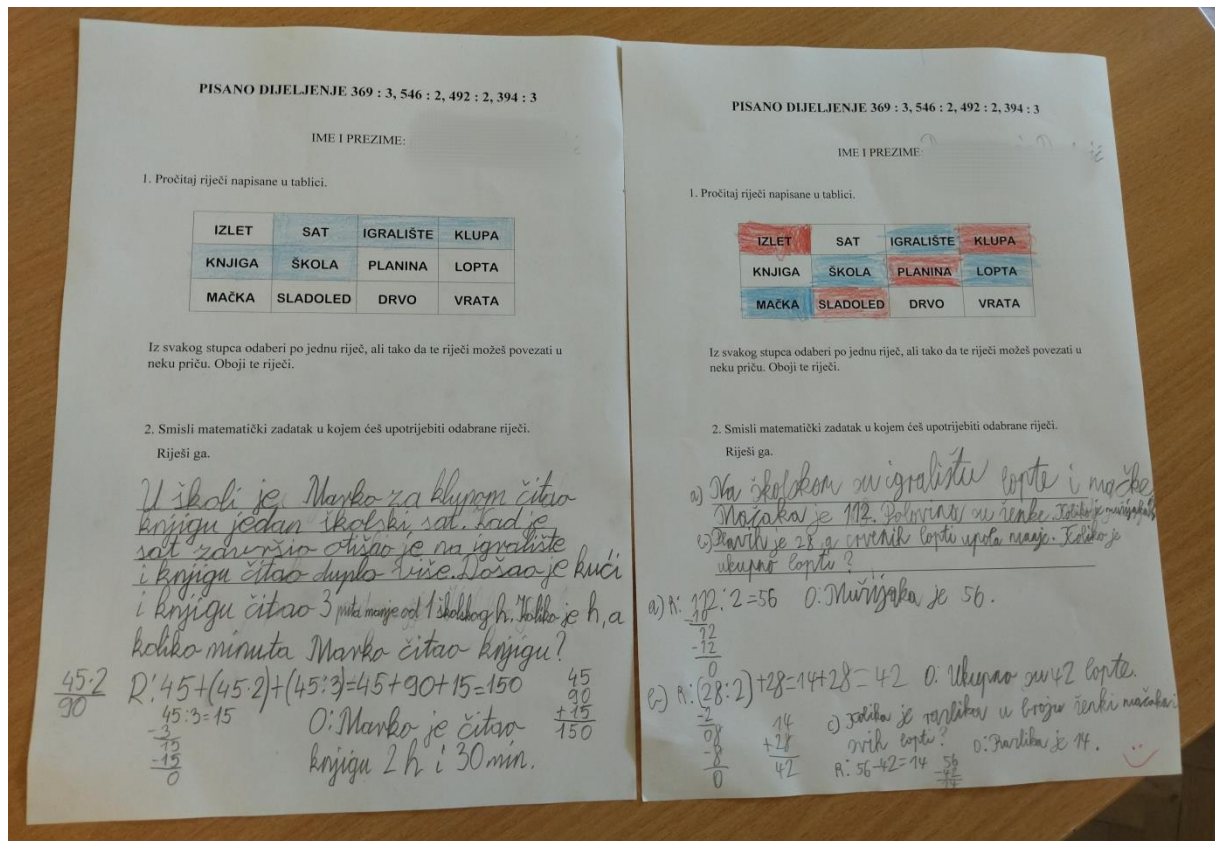 PISANO DIJELJENJE 369 : 3, 546 : 2, 492 : 2, 394 : 3
IME I PREZIME:
1. Pročitaj riječi napisane u tablici.
IZLET SAT IGRALIŠTE KLUPA
KNJIGA ŠKOLA PLANINA LOPTA
MAČKA SLADOLED DRVO VRATA
Iz svakog stupca odaberi po jednu riječ, ali tako da te riječi možeš povezati u
neku priču. Oboji te riječi.
2. Smisli matematički zadatak u kojem ćeš upotrijebiti odabrane riječi.
Riješi ga.
U školi je Marko za klupom čitao
knjigu jedan školski sat. Kad je
sat završio otišao je na igralište
i knjigu čitao duplo više. Došao je kući
i knjigu čitao 3 puta manje od 1 školskog h. Koliko je h, a
koliko minuta Marko čitao knjigu?
45·2
90
R: 45+(45·2)+(45:3)=45+90+15=150
45:3=15
-3
15
-15
0
O: Marko je čitao
knjigu 2 h i 30 min.
45
90
+15
150
PISANO DIJELJENJE 369 : 3, 546 : 2, 492 : 2, 394 : 3
IME I PREZIME:
1. Pročitaj riječi napisane u tablici.
IZLET SAT IGRALIŠTE KLUPA
KNJIGA ŠKOLA PLANINA LOPTA
MAČKA SLADOLED DRVO VRATA
Iz svakog stupca odaberi po jednu riječ, ali tako da te riječi možeš povezati u
neku priču. Oboji te riječi.
2. Smisli matematički zadatak u kojem ćeš upotrijebiti odabrane riječi.
Riješi ga.
a) Na školskom su igralištu lopte i mačke.
Mačaka je 112. Polovina su ženke. Koliko je mužjaka?
b) Plavih je 28, a crvenih lopti upola manje. Koliko je
ukupno lopti?
a) R: 112:2=56 O: Mužjaka je 56.
-10
12
-12
0
b) R: (28:2)+28=14+28=42 O: Ukupno su 42 lopte.
-2
08
-8
0
14
+28
42
c) Kolika je razlika u broju ženki mačaka i
svih lopti? O: Razlika je 14.
R: 56-42=14
56
-42
14